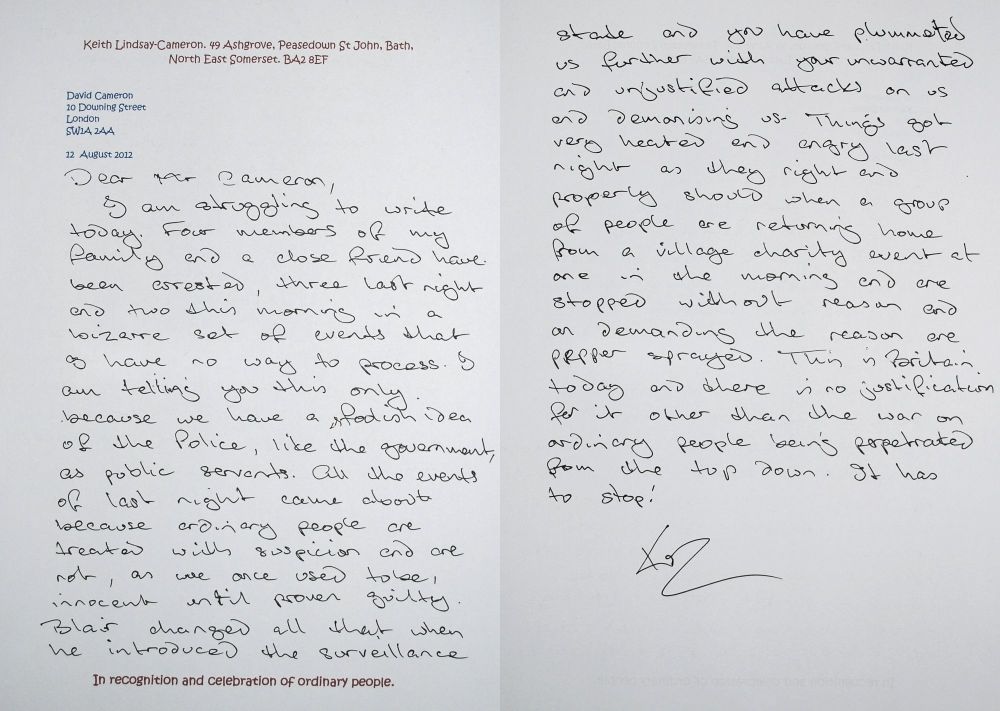 Keith Lindsay-Cameron. 49 Ashgrove, Peasedown St John, Bath,
North East Somerset. BA2 8EF
David Cameron
10 Downing Street
London
SW1A 2AA
12 August 2012
Dear Mr Cameron,
I am struggling to write
today. Four members of my
family and a close friend have
been arrested, three last night
and two this morning in a
bizarre set of events that
I have no way to process. I
am telling you this only
because we have a idea
of the Police, like the government,
as public servants. All the events
of last night came about
because ordinary people are
treated with suspicion and are
not, as we once used to be,
innocent until proven guilty.
Blair changed all that when
he introduced the surveillance
In recognition and celebration of ordinary people.
state and you have plummeted
us further with your unwarranted
and unjustified attacks on us
and demonising us. Things got
very heated and angry last
night as they right and
properly should when a group
of people are returning home
from a village charity event at
one in the morning and are
stopped without reason and
on demanding the reason are
pepper sprayed. This is Britain
today and there is no justification
for it other than the war on
ordinary people being perpetrated
from the top down. It has
to stop!